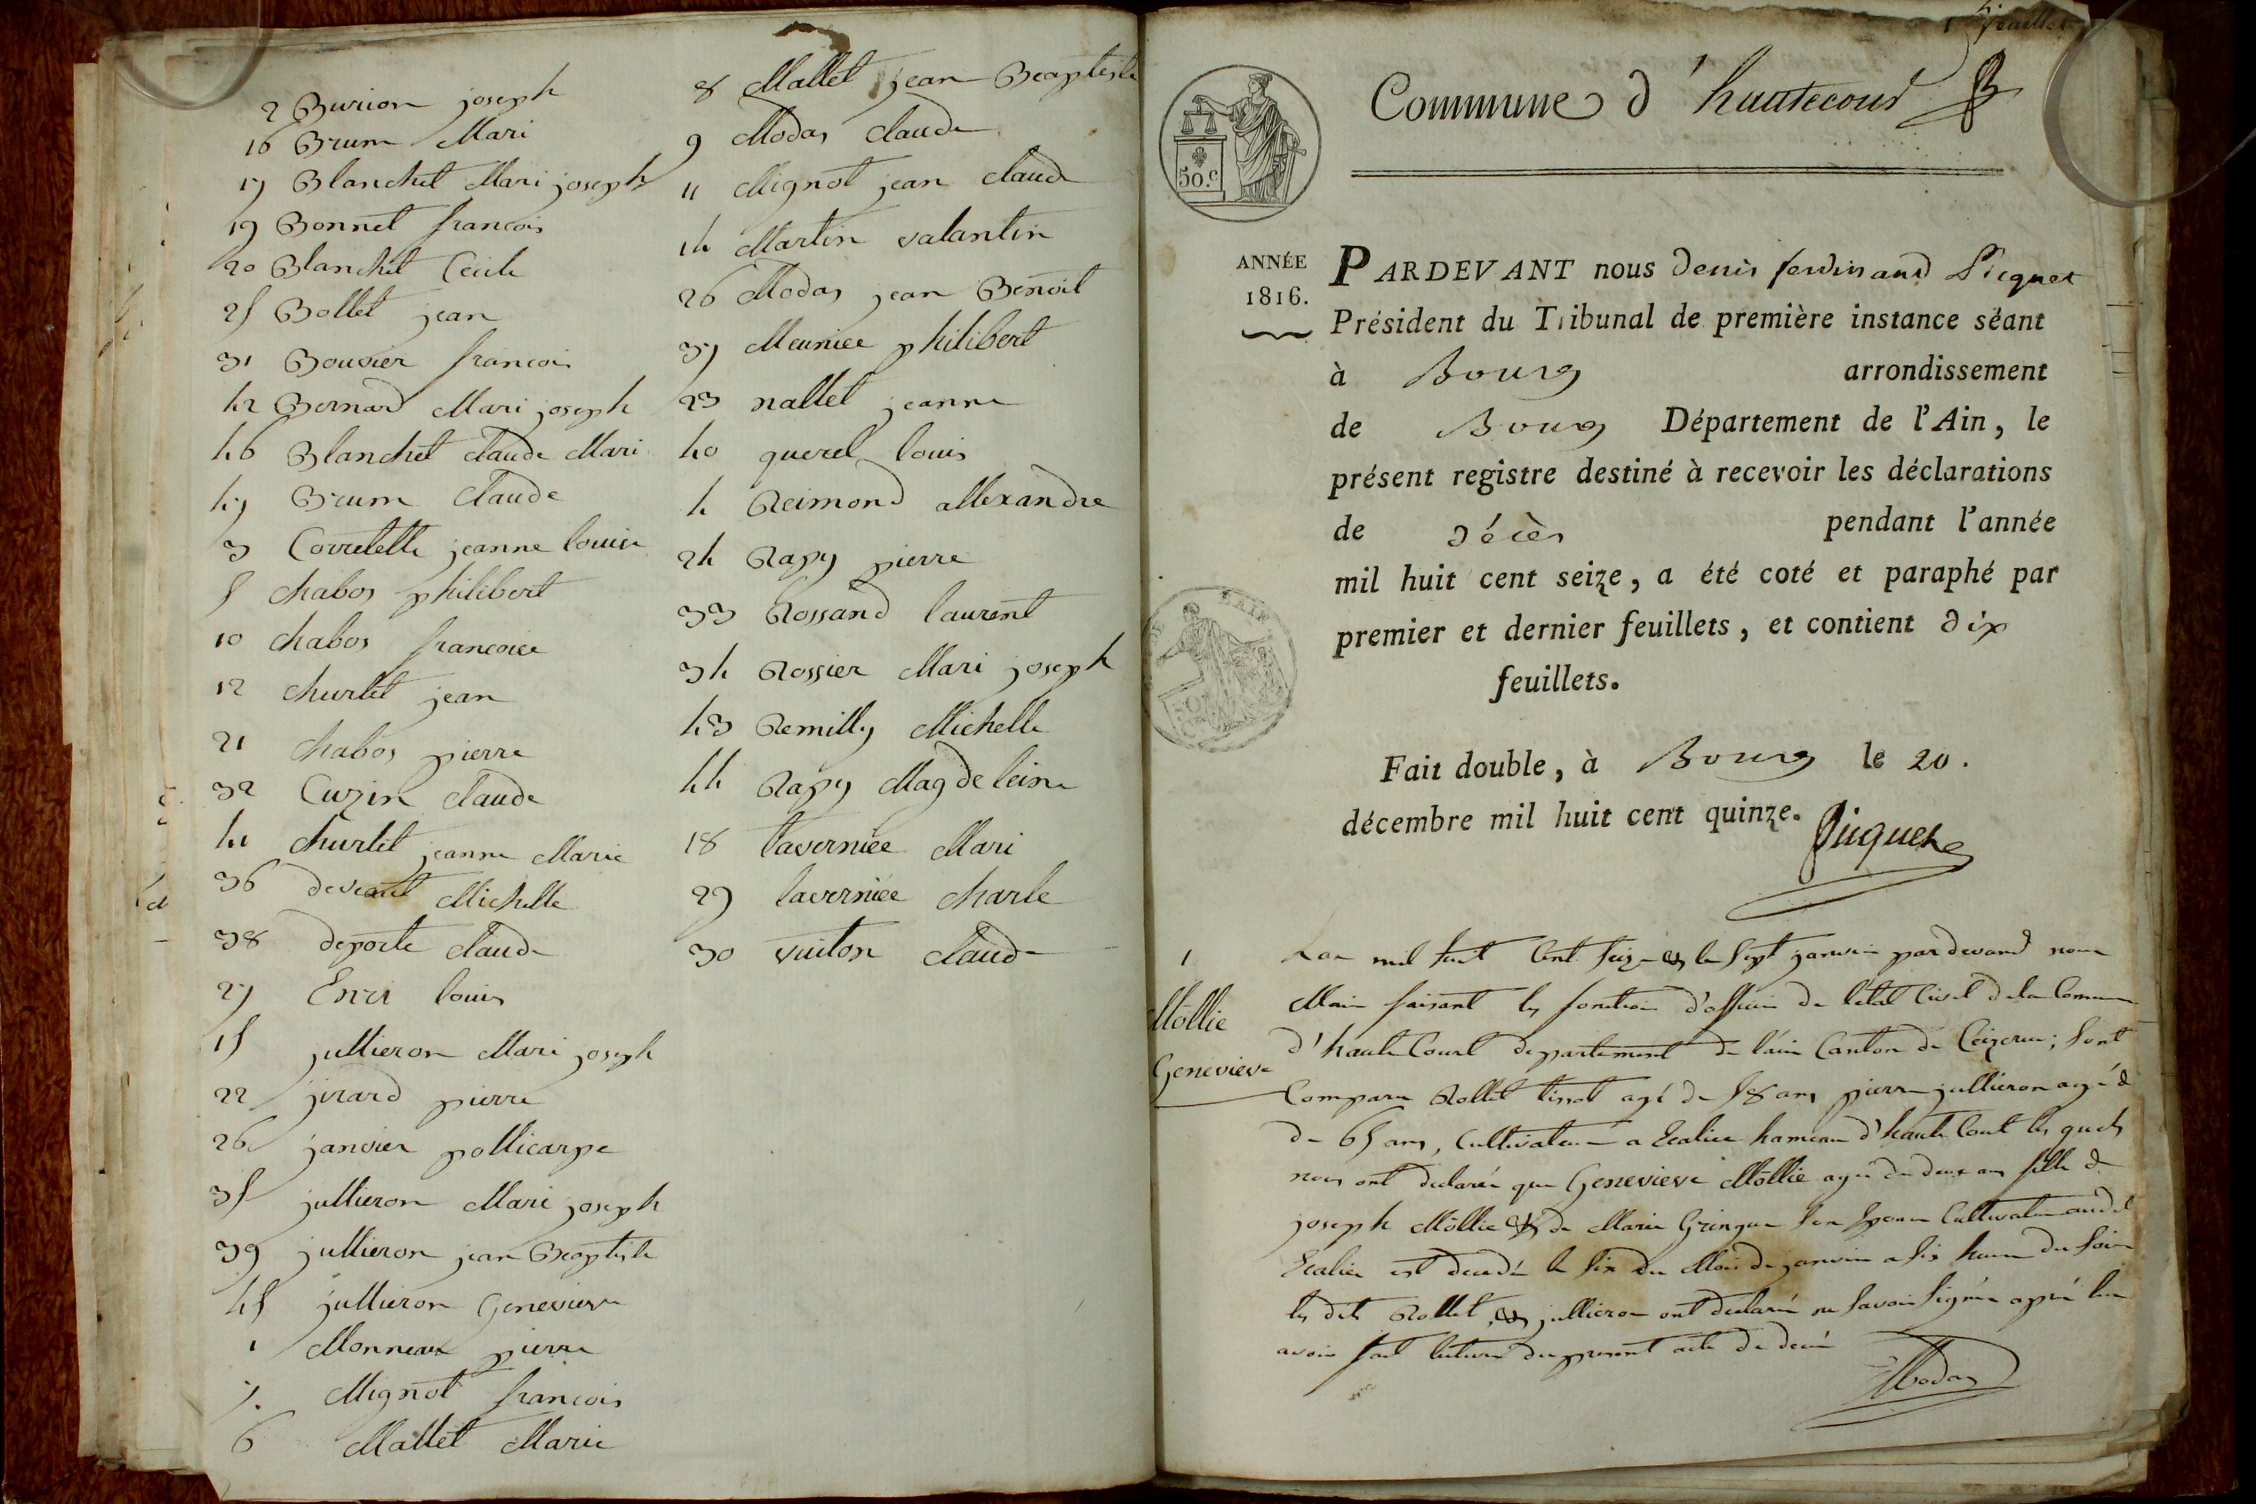 2 Burion joseph
16 Brum Mari
17 Blanchet Mari joseph
19 Bonnet francois
20 Blanchet Cécile
25 Bollet jean
31 Bouvier francois
42 Bernard Mari joseph
46 Blanchet claude Mari
47 Brum Claude
3 Corretelle jeanne louise
5 chabos philibert
10 chabos francoise
12 churlet jean
21 chabos pierre
32 Cuzin claude
41 churlet jeanne Marie
36 Michelle
38 deporte claude
27 Enri louis
15 jullieron Mari joseph
22 jirard pierre
26 janvier pollicarpe
35 jullieron Mari joseph
39 jullieron jean Beaptiste
45 jullieron Genevieve
1 Monneaux pierre
7. Mignot francois
6 Mallet Marie
8 Mallet jean Beaptiste
9 Modas claude
11 Mignot jean claude
14 Martin valantin
26 Modas jean Benoit
37 Meuniee philibert
23 nallet jeanne
40 querel louis
4 Reimond allexandre
24 Rapy pierre
33 Rossand laurent
34 Rossier Mari joseph
43 Remilly Michelle
44 Rapy Magdeleine
18 taverniée Mari
29 taverniée charle
30 vuiton claude
1 feuillet
Commune d'hautecour
50.c
ANNÉE
1816.
PARDEVANT nous denis ferdinand Picquet
Président du Tribunal de première instance séant
à Bourg arrondissement
de Bourg Département de l'Ain, le
présent registre destiné à recevoir les déclarations
de décès pendant l'année
mil huit cent seize, a été coté et paraphé par
premier et dernier feuillets, et contient dix
feuillets.
Fait double, à Bourg le 20.
décembre mil huit cent quinze.
Picquet
1
Mollie
Genevieve
Lan mil huit Cent seize & le sept janvier pardevand nous
Maire faisant les fonction d'officier de l'état Civil de la Comune
d'haute Court departement de l'ain Canton de Ceizeriat; sont
Comparu Rollet tissot agé de 58 ans pierre jullieron agé de
de 65 ans, Cultivateur a hameau d'haute Court les quels
nous ont declarée que Genevieve Mollie agée de deux ans fille de
joseph Mollie & de Marie Gringue son Epouse Cultivateur audit
est decedée le six du Mois de janvier a six heure du soir
les dits Rollet & jullieron ont declarée ne savoir signée aprè leur
avoir fait lecture du present acte de decé
Modas